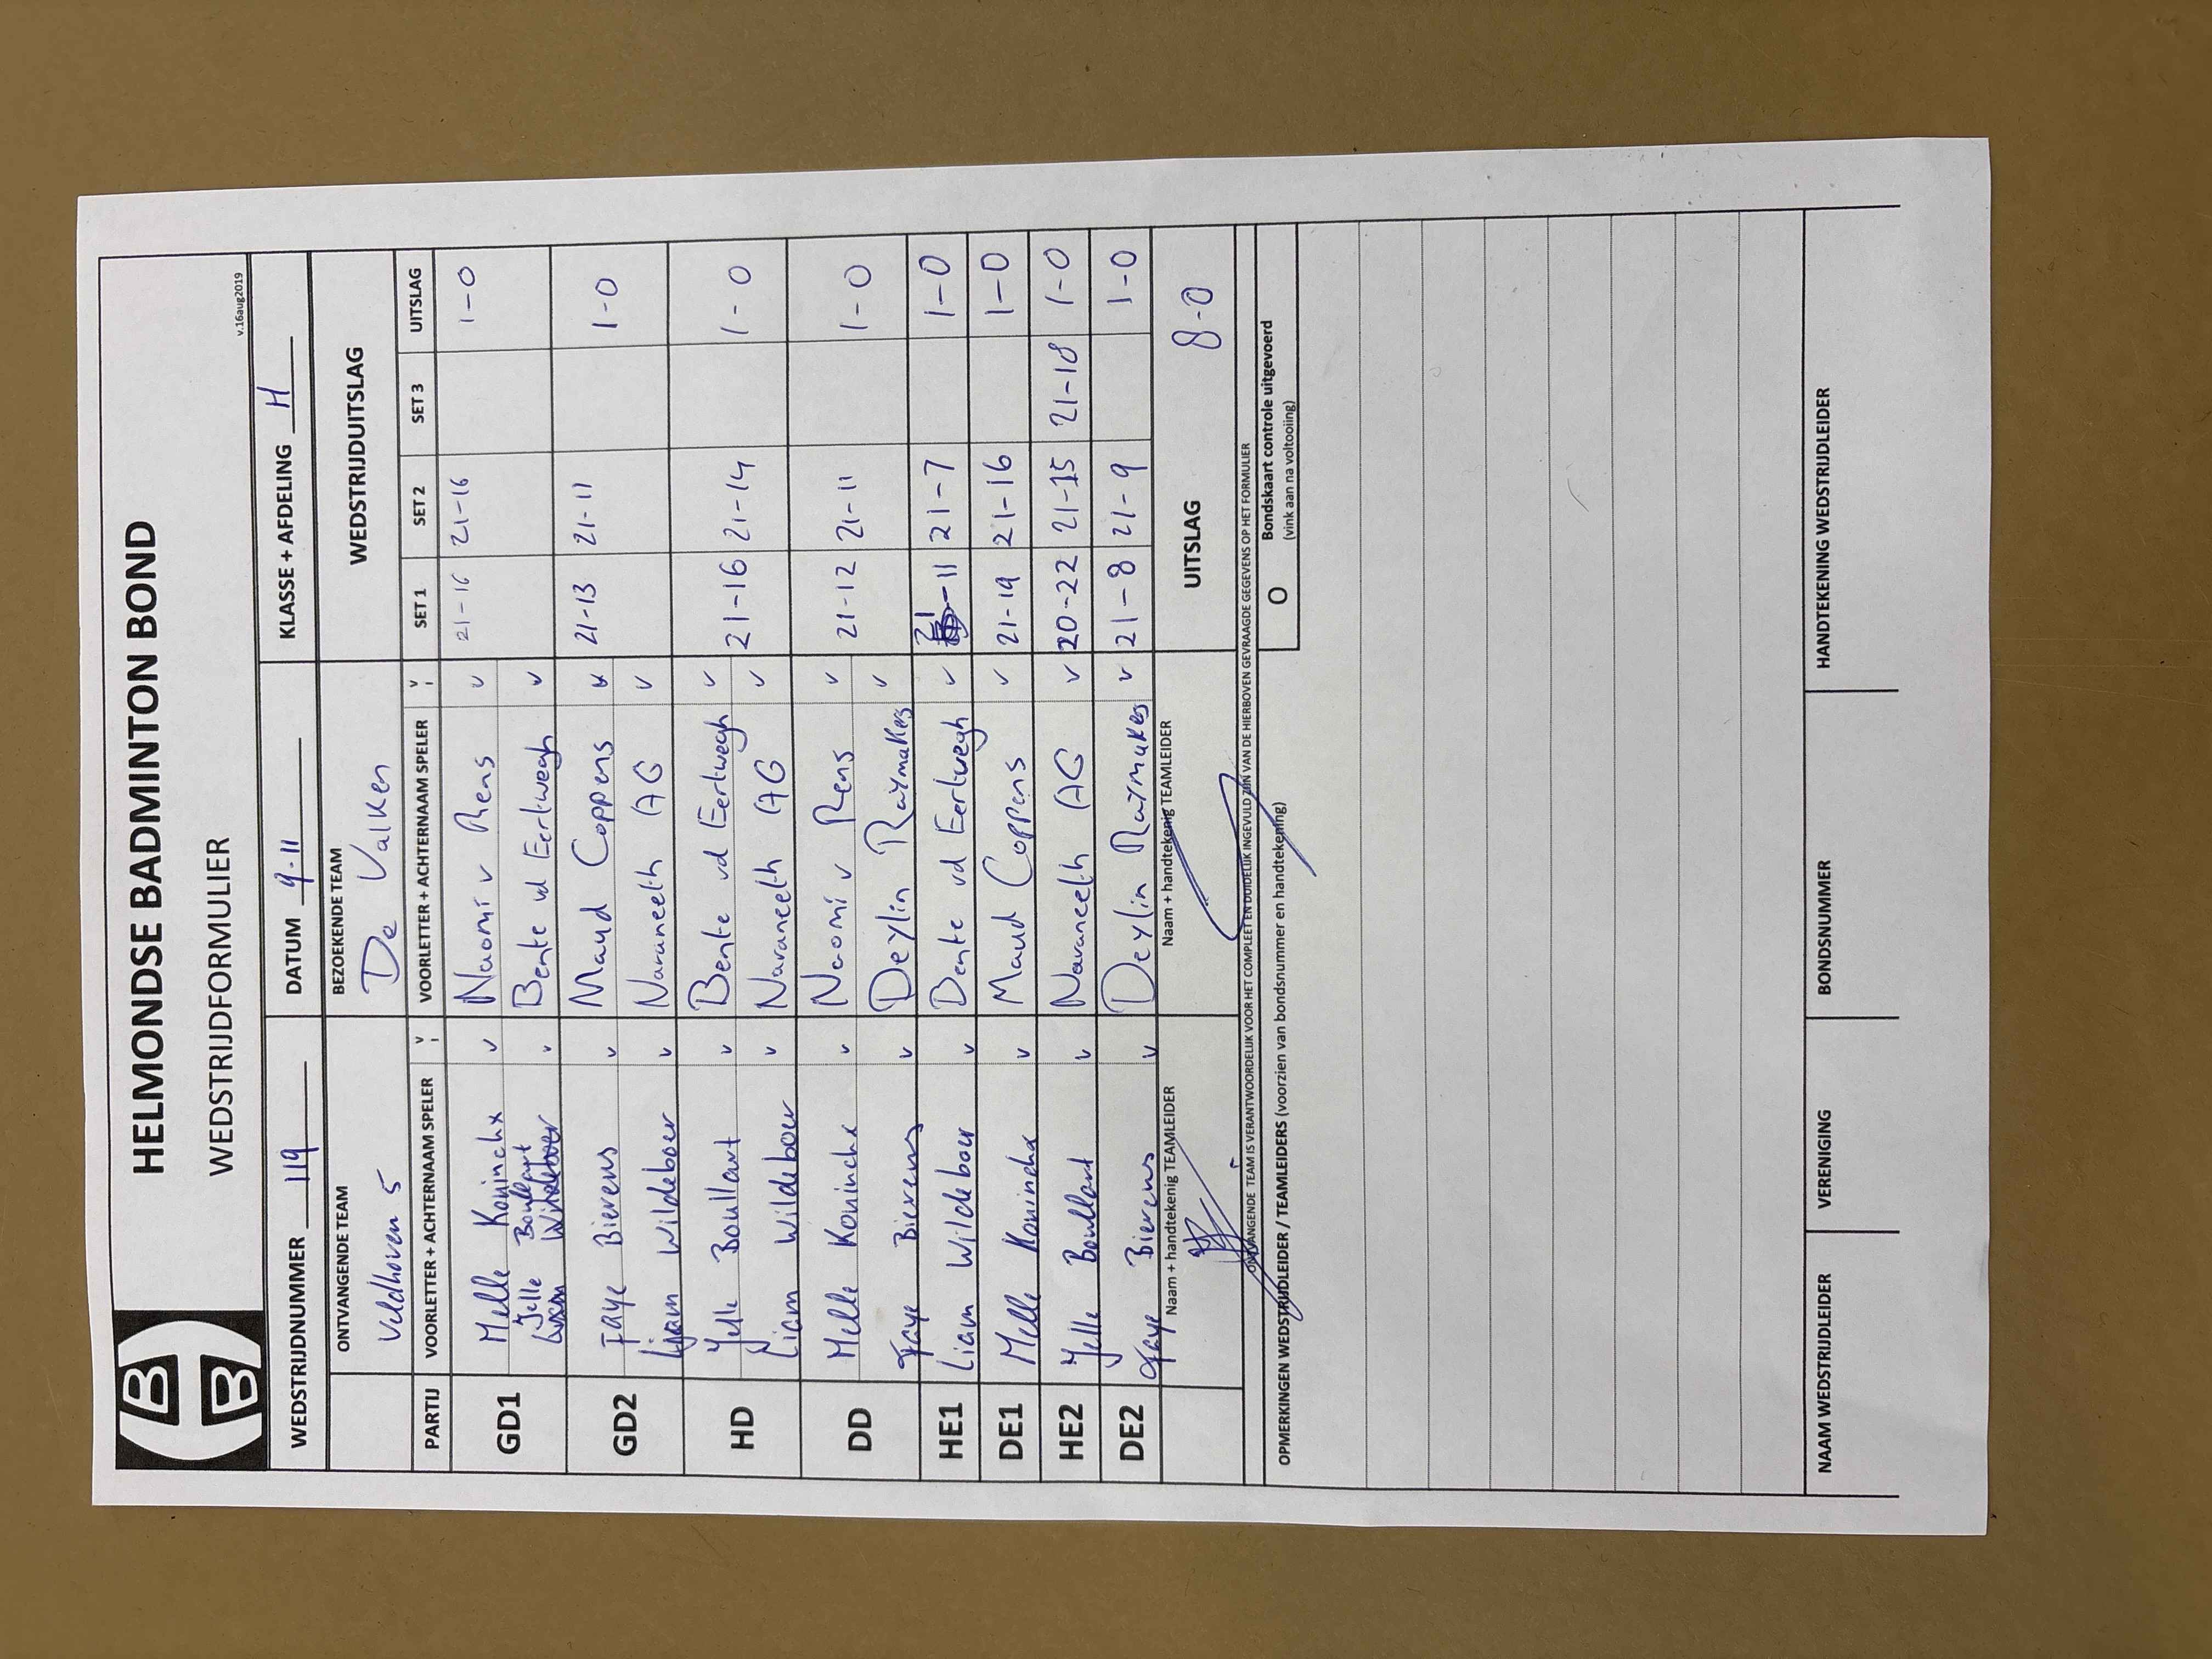 HELMONDSE BADMINTON BOND
WEDSTRIJDFORMULIER
v.16aug2019
WEDSTRIJDNUMMER 119 DATUM 9-11 KLASSE + AFDELING H
ONTVANGENDE TEAM BEZOEKENDE TEAM WEDSTRIJDUITSLAG
Veldhoven 5 De Valken
PARTIJ VOORLETTER + ACHTERNAAM SPELER V VOORLETTER + ACHTERNAAM SPELER V SET 1 SET 2 SET 3 UITSLAG
GD1 Melle Koninchx v Naomi v Rens v 21-16 21-16 1-0
Jelle Boullart v Bente vd Eertwegh v
GD2 Faye Bierens v Maud Coppens v 21-13 21-11 1-0
Liam Wildeboer v Navaneeth AG v
HD Jelle Boullart v Bente vd Eertwegh v 21-16 21-14 1-0
Liam Wildeboer v Navaneeth AG v
DD Melle Koninchx v Naomi v Rens v 21-12 21-11 1-0
Faye Bierens v Deylin Raymakers v
HE1 Liam Wildeboer v Bente vd Eertwegh v 21-11 21-7 1-0
DE1 Melle Koninchx v Maud Coppens v 21-19 21-16 1-0
HE2 Jelle Boullart v Navaneeth AG v 20-22 21-15 21-18 1-0
DE2 Faye Bierens v Deylin Raymakers v 21-8 21-9 1-0
Naam + handtekenig TEAMLEIDER Naam + handtekenig TEAMLEIDER UITSLAG 8-0
ONTVANGENDE TEAM IS VERANTWOORDELIJK VOOR HET COMPLEET EN DUIDELIJK INGEVULD ZIJN VAN DE HIERBOVEN GEVRAAGDE GEGEVENS OP HET FORMULIER
OPMERKINGEN WEDSTRIJDLEIDER / TEAMLEIDERS (voorzien van bondsnummer en handtekening)
O Bondskaart controle uitgevoerd
(vink aan na voltooiing)
NAAM WEDSTRIJDLEIDER VERENIGING BONDSNUMMER HANDTEKENING WEDSTRIJDLEIDER